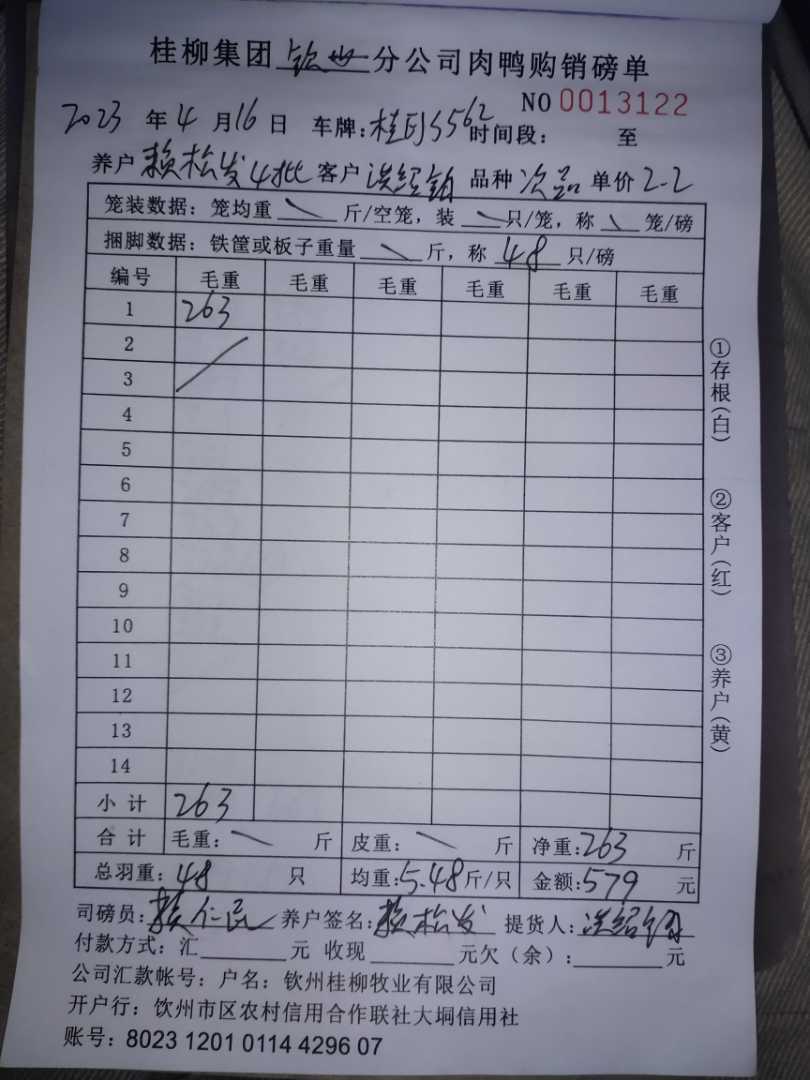 桂柳集团 钦州 分公司肉鸭购销磅单
NO 0013122
2023 年 4 月 16 日 车牌: 桂 S5562 时间段: 至
养户 赖松发 4批 客户 洪绍 品种 次品 单价 2-2
笼装数据: 笼均重 \ 斤/空笼, 装 \ 只/笼, 称 \ 笼/磅
捆脚数据: 铁筐或板子重量 \ 斤, 称 48 只/磅
编号 毛重 毛重 毛重 毛重 毛重 毛重
1 263
2
3
4
5
6
7
8
9
10
11
12
13
14
小计 263
合计 毛重: \ 斤 皮重: \ 斤 净重: 263 斤
总羽重: 48 只 均重: 5.48 斤/只 金额: 579 元
司磅员: 赖仁民 养户签名: 赖松发 提货人: 洪绍
付款方式: 汇____元 收现____元欠(余): ____元
公司汇款帐号: 户名: 钦州桂柳牧业有限公司
开户行: 钦州市区农村信用合作联社大垌信用社
账号: 8023 1201 0114 4296 07
①存根(白)
②客户(红)
③养户(黄)